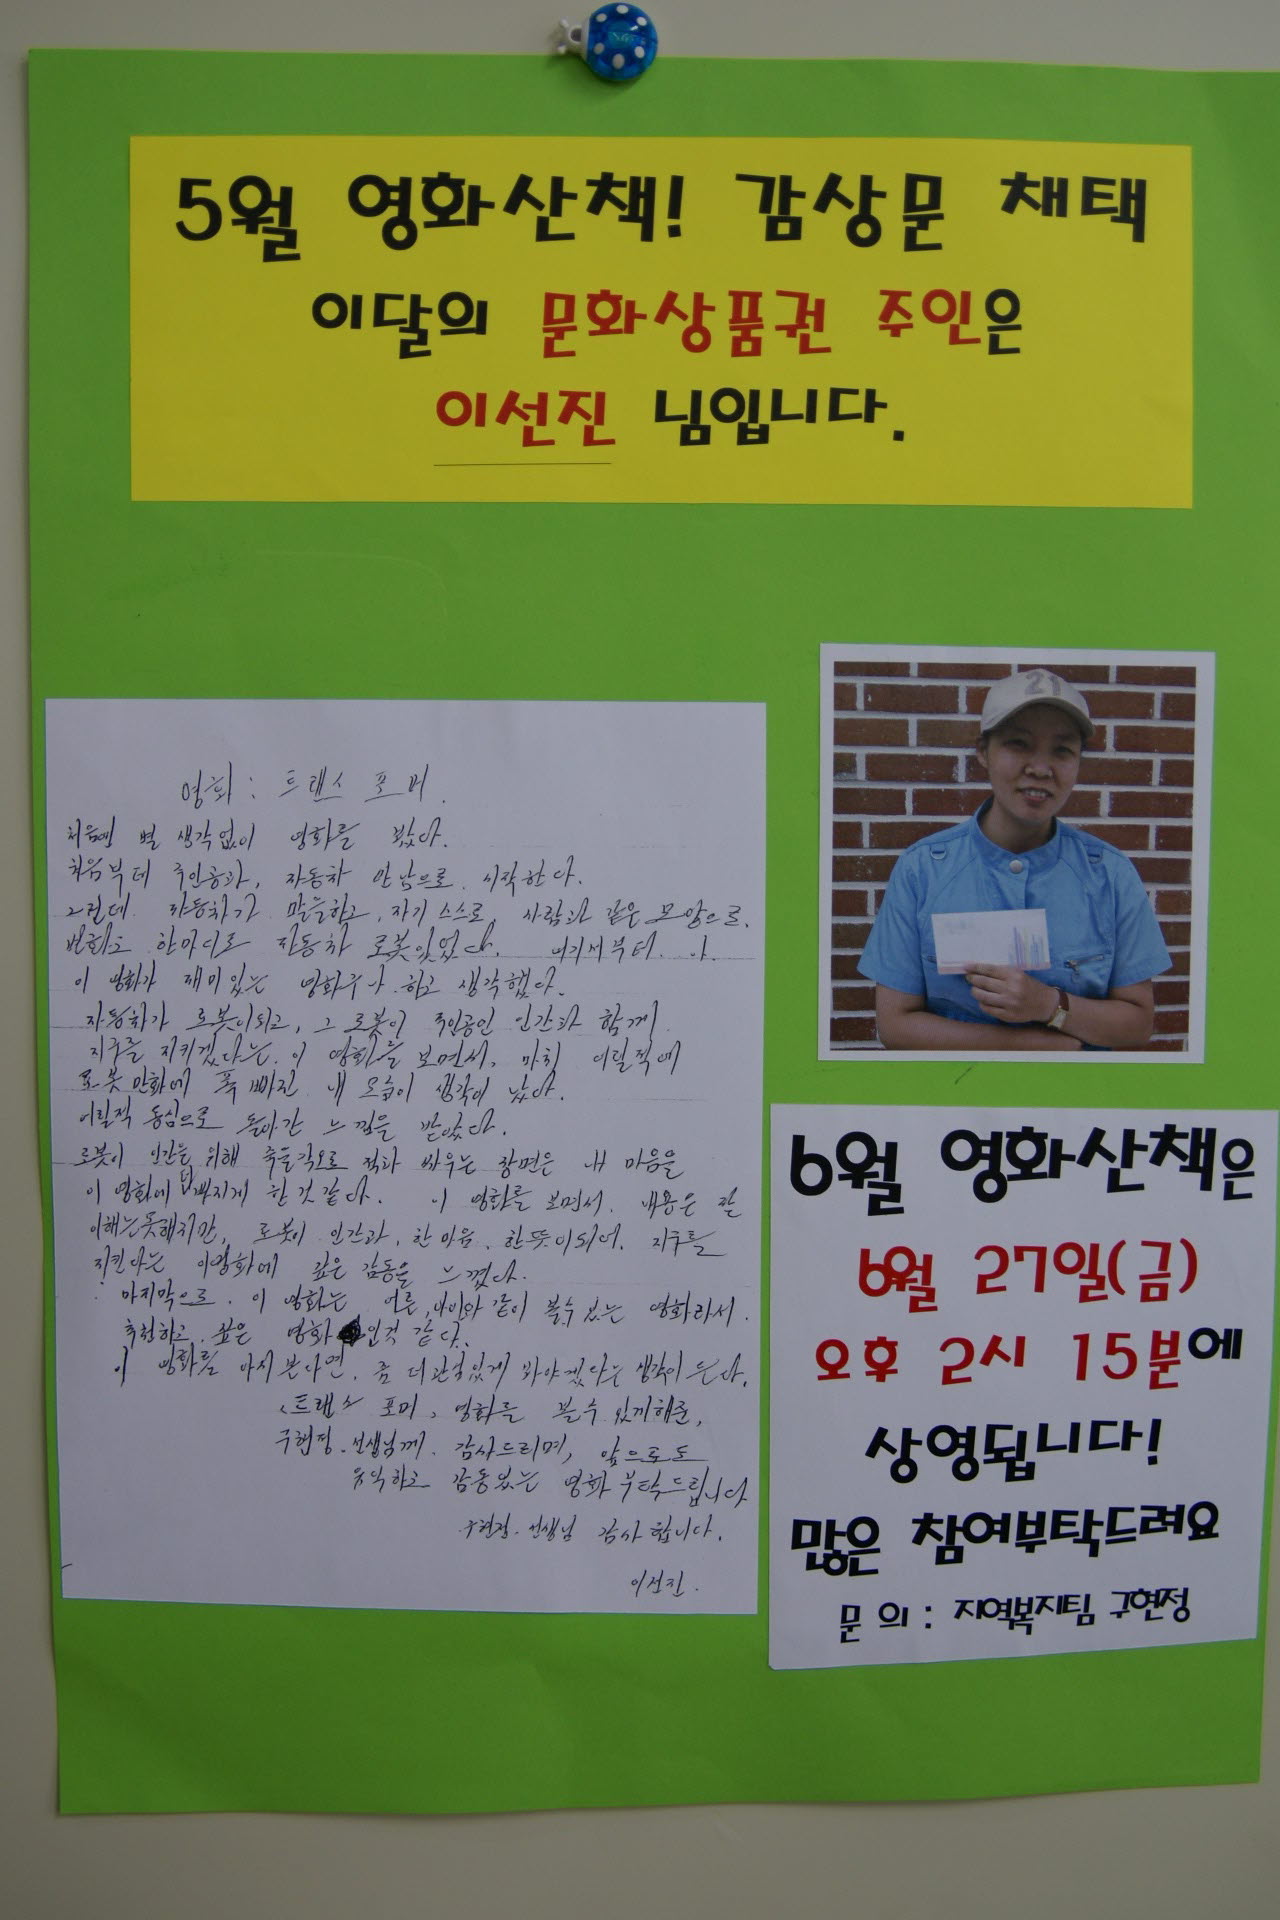 5월 영화산책! 감상문 채택
이달의 문화상품권 주인은
이선진 님입니다.
21
영화 : 트랜스 포머.
처음엔 별 생각없이 영화를 봤다.
처음부터 주인공과, 자동차 만남으로 시작한다.
그런데 자동차가 말을하고, 자기 스스로, 사람과 같은 모양으로.
변화고 한마디로 자동차 로봇이었다. 여기서부터. 아.
이 영화가 재미있는 영화구나 하고 생각했다.
자동차가 로봇이되고, 그 로봇이 주인공인 인간과 함께
지구를 지키겠다는 이 영화를 보면서, 마치 어릴적에
로봇 만화에 푹 빠진 내 모습이 생각이 났다.
어릴적 동심으로 돌아간 느낌을 받았다.
로봇이 인간을 위해 죽을각오로 적과 싸우는 장면은 내 마음을
이 영화에 빠지게 한것 같다. 이 영화를 보면서. 내용은 잘
이해는못해지만, 로봇이 인간과, 한마음. 한뜻이되어. 지구를
지킨다는 이영화에 깊은 감동을 느꼈다.
마지막으로. 이 영화는 어른, 아이와 같이 볼수 있는 영화라서.
추천하고 싶은 영화 인것 같다.
이 영화를 다시 본다면, 좀 더 관심있게 봐야겠다는 생각이 든다.
트랜스 포머, 영화를 볼수 있게해준,
구현정 선생님께. 감사드리며, 앞으로도
유익하고 감동있는 영화 부탁드립니다
구현정. 선생님 감사 합니다.
이선진.
6월 영화산책은
6월 27일(금)
오후 2시 15분에
상영됩니다!
많은 참여부탁드려요
문 의 : 지역복지팀 구현정